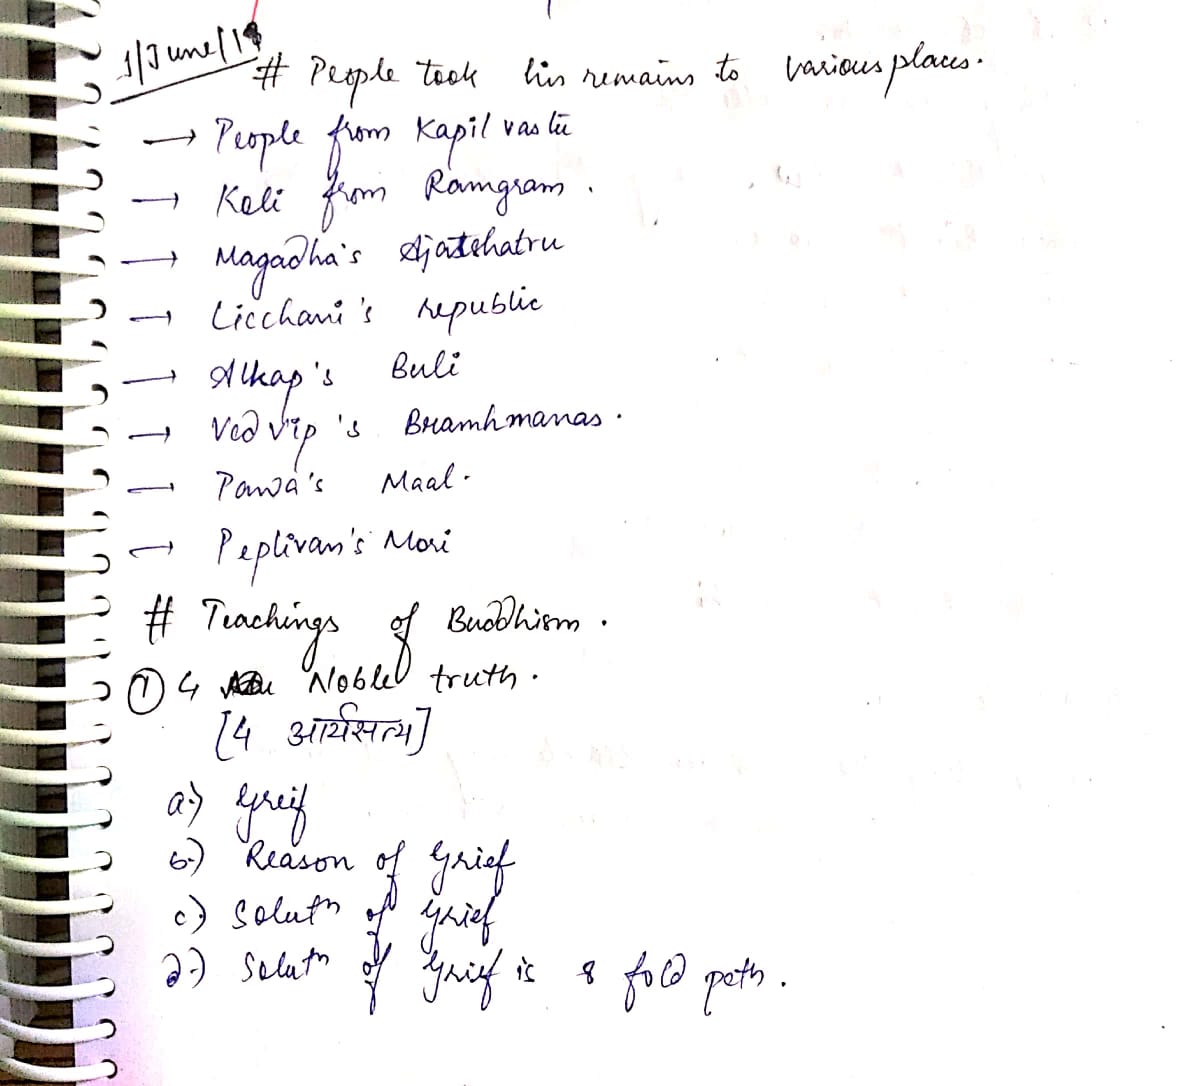 1/June/19
# People took his remains to various places.
→ People from Kapil vastu
→ Koli from Ramgram.
→ Magadha's Ajatshatru
→ Licchavi's republic
→ Alkap's Buli
→ Vedvip's Bramhmanas.
→ Pawa's Maal.
→ Peplivan's Mori
# Teachings of Buddhism.
① 4 Noble truth.
[4 आर्यसत्य]
a.) Greif
b.) Reason of Grief
c.) Solutn of Grief
d.) Solutn of Grief is 8 fold path.